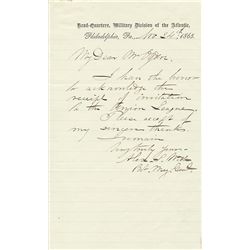 Head-Quarters, Military Division of the Atlantic,
Philadelphia, Pa., Nov 24th 1865.
My Dear Mr
I have the honor
to acknowledge the
receipt of invitation
to the Union League.
Please accept of
my sincere thanks.
I remain
truly yours
Bvt. Maj. Genl